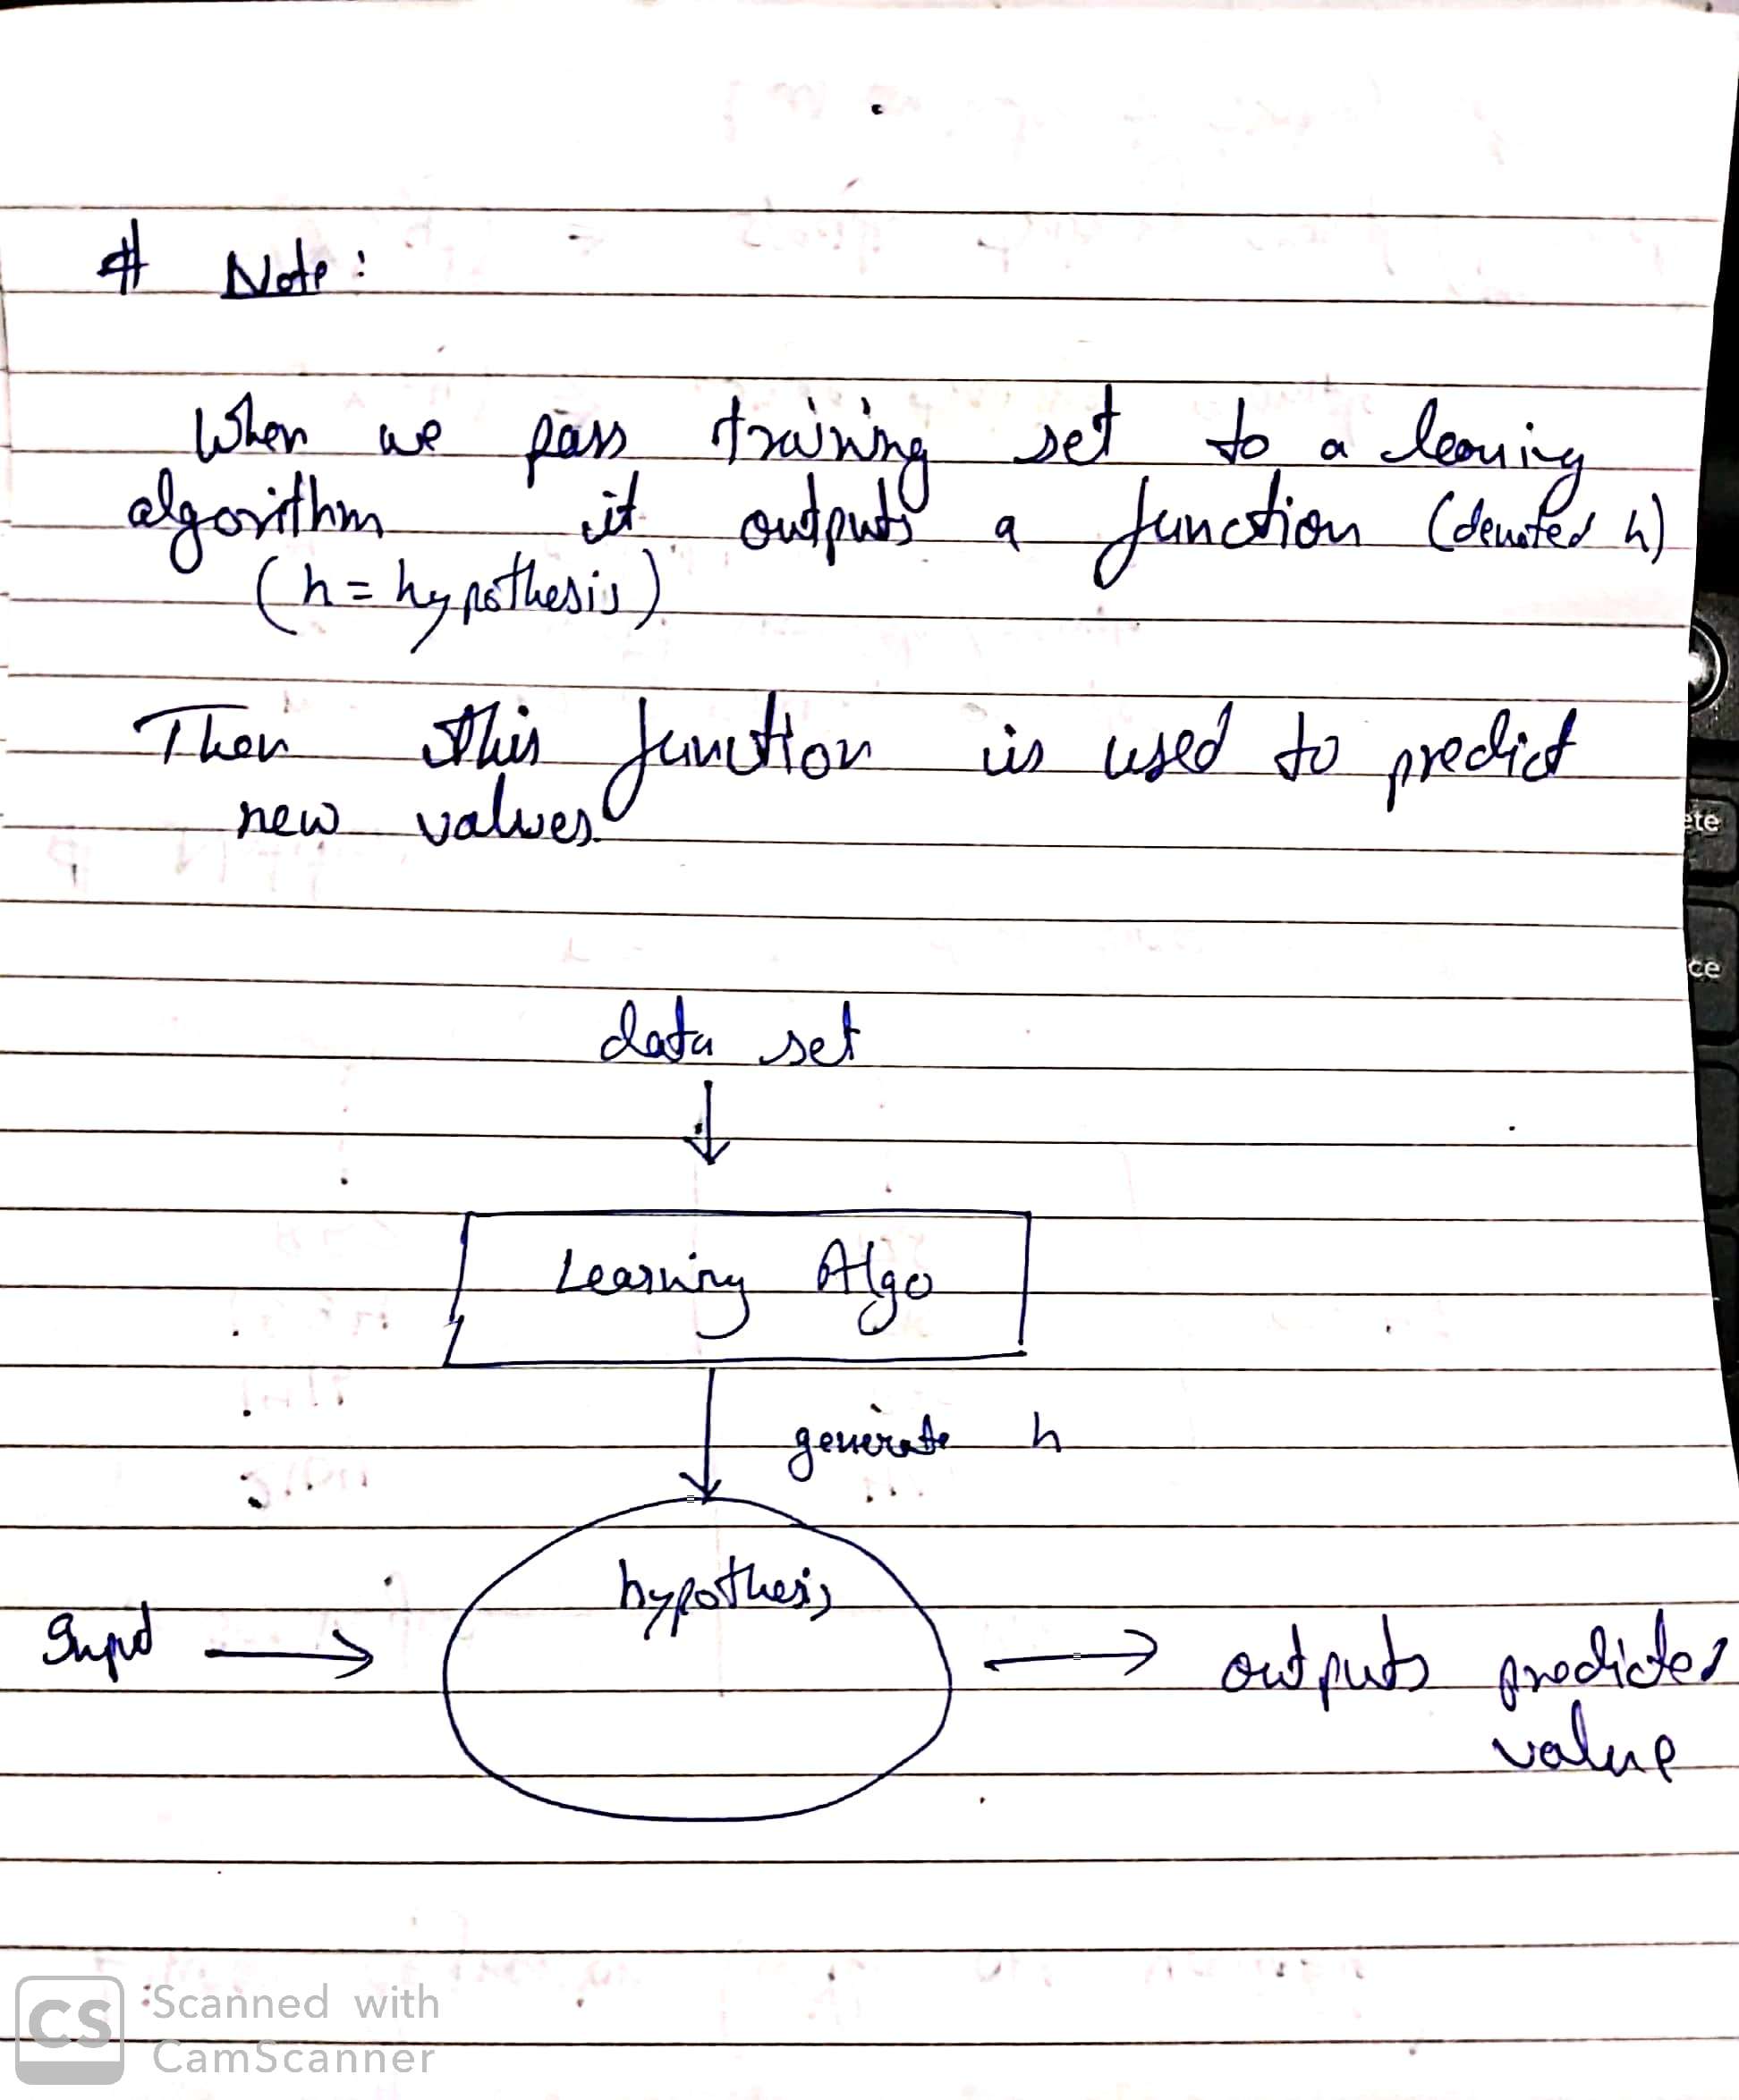 # Note:
When we pass training set to a learning
algorithm it outputs a function (denoted h)
(h = hypothesis)
Then this function is used to predict
new values.
data set
Learning Algo
generate h
hypothesis
Input
outputs predicted
value
ete
ce
CS
Scanned with
CamScanner